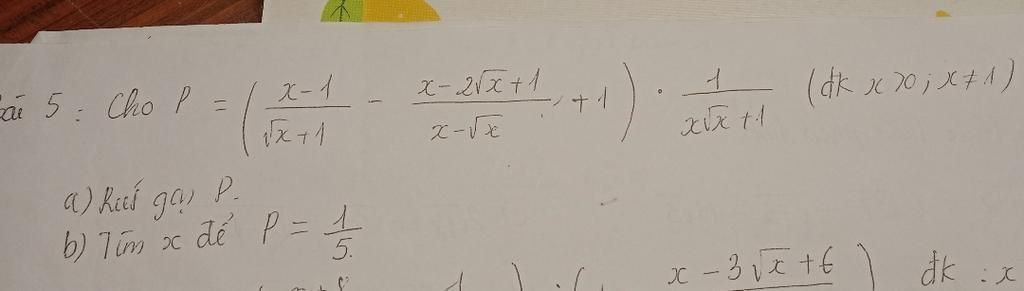 bài 5 : Cho P = ( (x-1)/(√x+1) - (x-2√x+1)/(x-√x) + 1 ) . 1/(x√x+1) (đk x>0; x≠1)
a) Rút gọn P.
b) Tìm x để P = 1/5.
x - 3√x + 6 ) đk : x